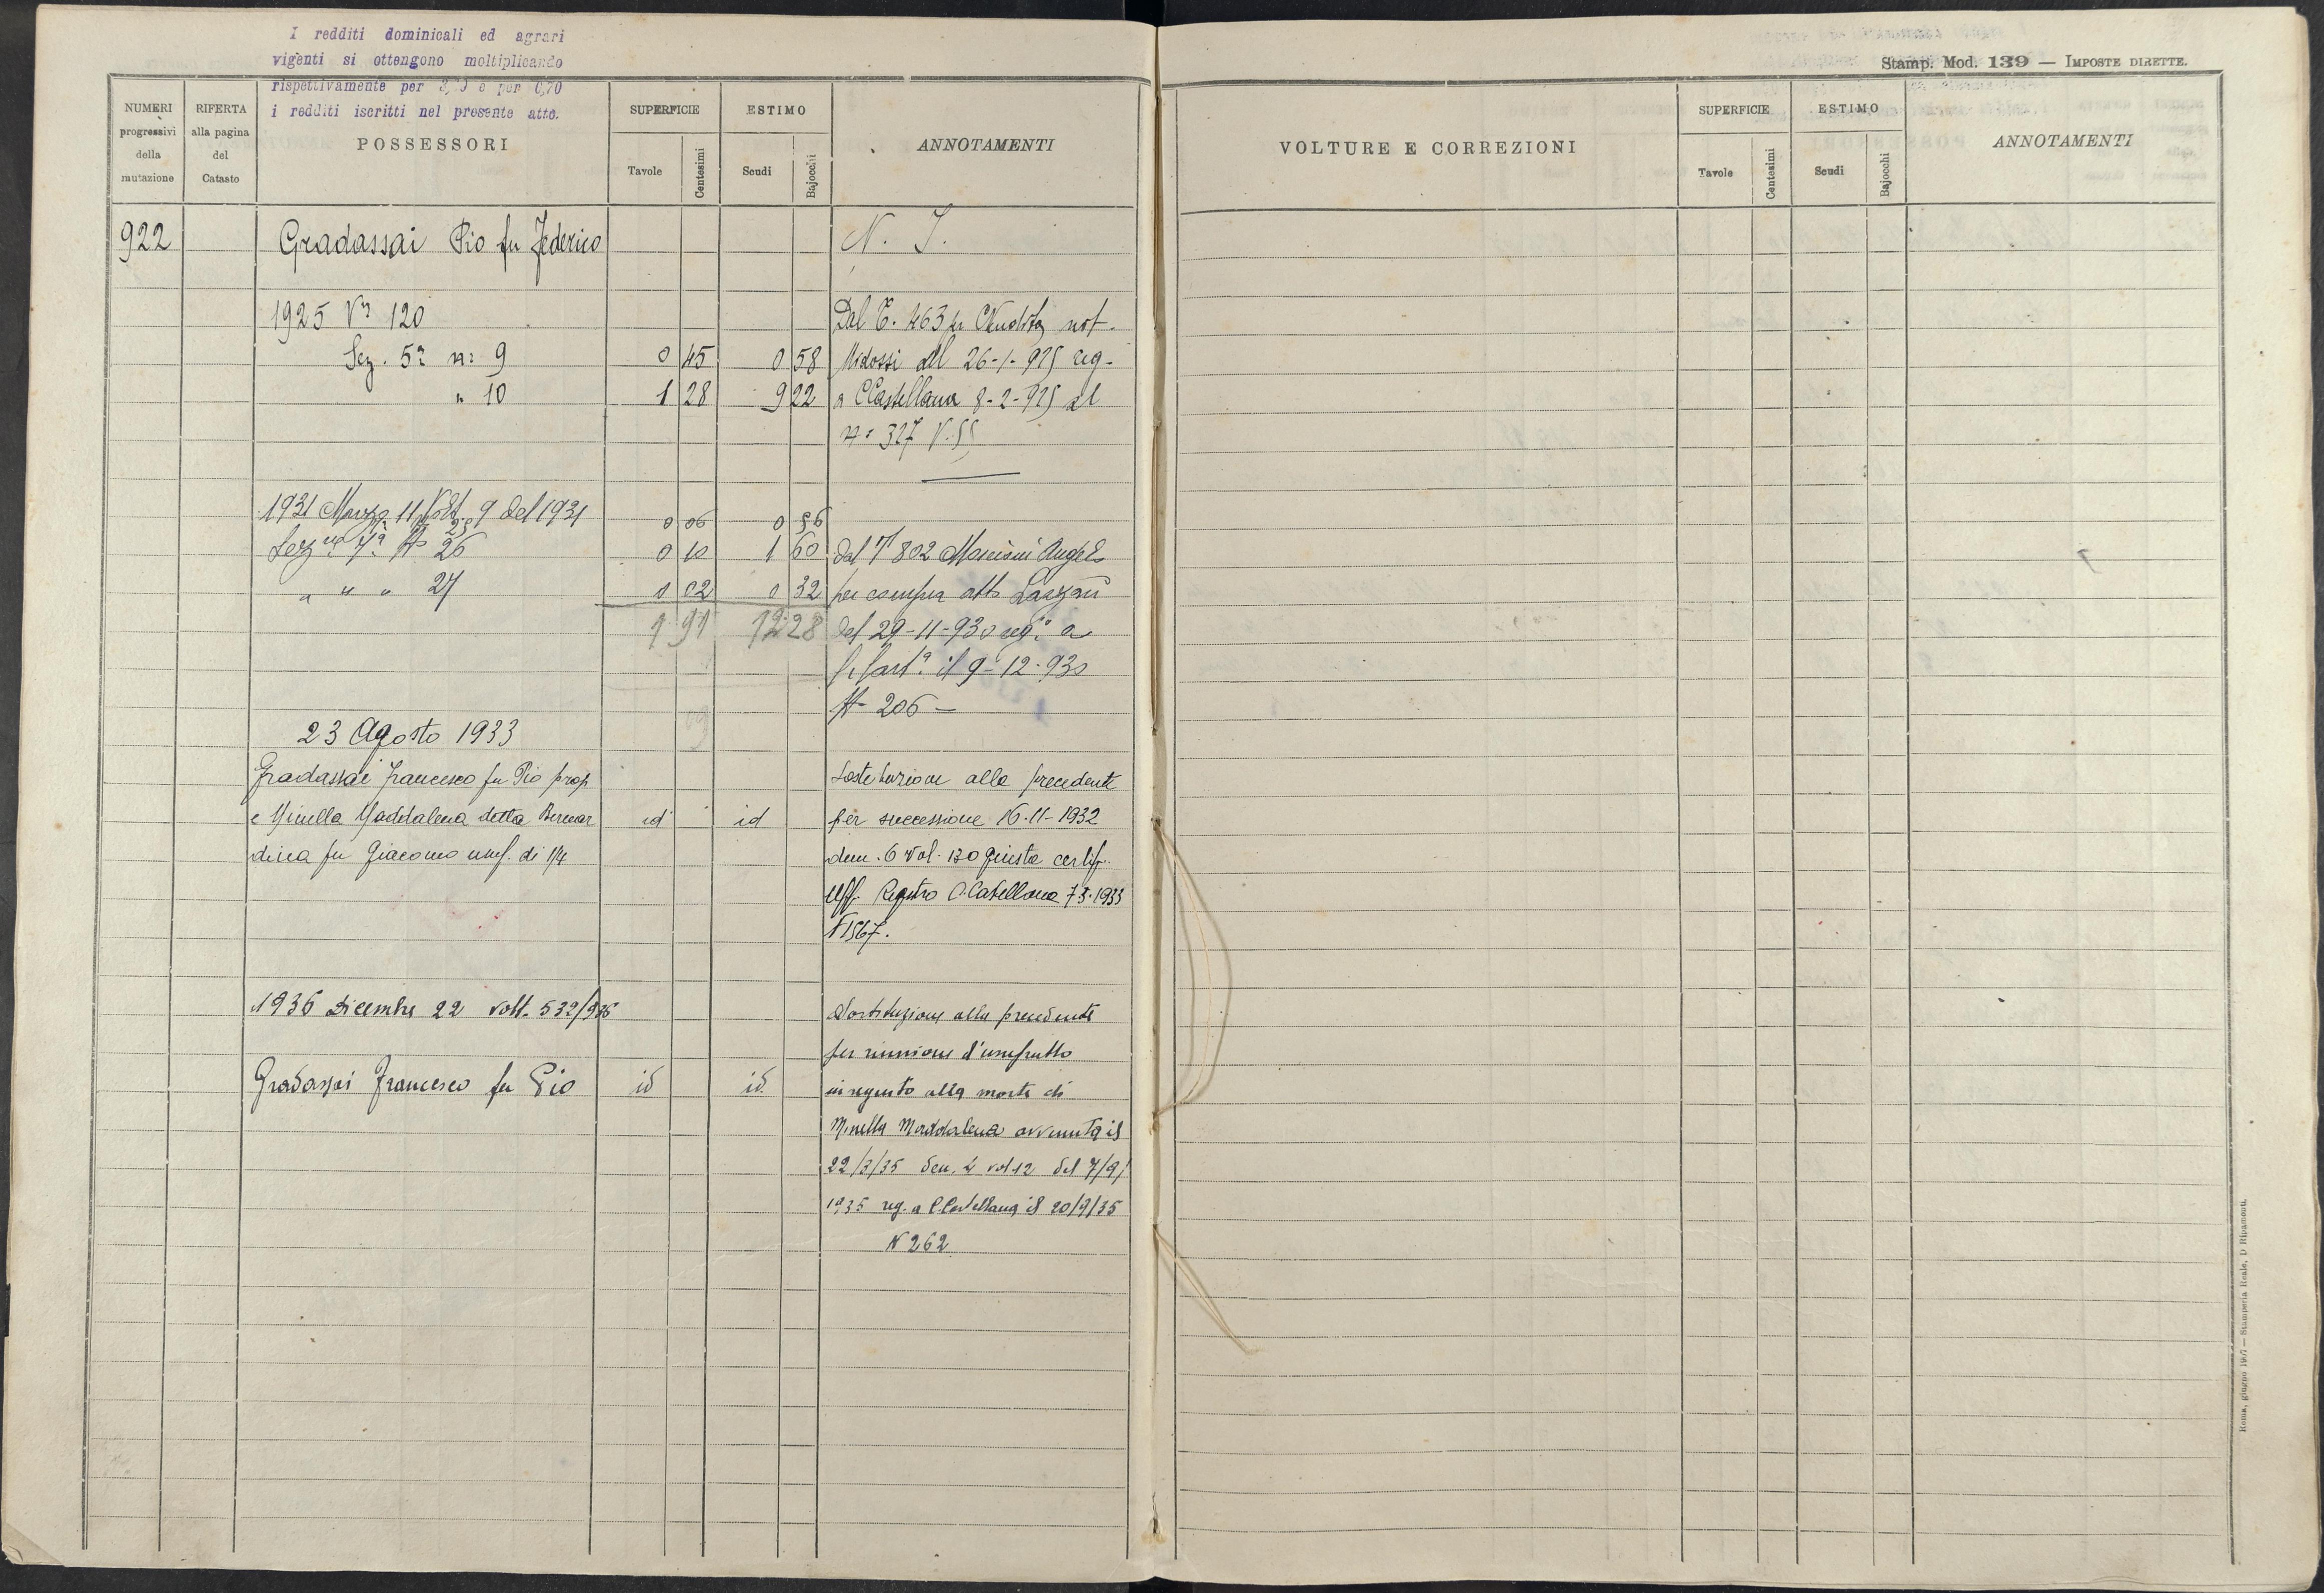 I redditi dominicali ed agrari
vigenti si ottengono moltiplicando
rispettivamente per e per 0,70
i redditi iscritti nel presente atto.
NUMERI progressivi della mutazione
RIFERTA alla pagina del Catasto
POSSESSORI
SUPERFICIE
Tavole Centesimi
ESTIMO
Scudi Bajocchi
ANNOTAMENTI
922 Gradassai Pio fu Federico N. I.
1925 Vª 120 Dal T. 463 per not.
Sez. 5ª nº 9 0 45 0 58 Midossi del 26-1-925 reg.
" 10 1 28 9 22 a CCastellana 8-2-925 al
nº 327 V. 55
1931 Marzo 11 Volt. 9 del 1931
25 0 06 0 56
Sezne 7ª Nº 26 0 10 1 60 Dal T 802 Angelo
" " " 27 0 02 0 32 per compra atto
1 91 12 28 del 29-11-930 regº a
il 9-12-930
Nº 206 —
23 Agosto 1933
Gradassai Francesco fu Pio prop Sostituzione alla precedente
e Minella Maddalena detta Bernar id id per successione 16-11-1932
dina fu Giacomo usuf. di 1/4 den. 6 Vol. 130 giusta certif.
Uff. Registro C. Castellana 7 3 1933
N 1567.
1936 Dicembre 22 volt. 532/936 Sostituzione alla precedente
per riunione d'usufrutto
Gradassai Francesco fu Pio id id. in seguito alla morte di
Minella Maddalena avvenuta il
22/3/35 den. 4 vol 12 del 7/9/
1935 reg. a C. Castellana il 20/9/35
N 262
Stamp. Mod. 139 — IMPOSTE DIRETTE.
VOLTURE E CORREZIONI
SUPERFICIE
Tavole Centesimi
ESTIMO
Scudi Bajocchi
ANNOTAMENTI
Roma, giugno — Stamperia Reale, D. Ripamonti.